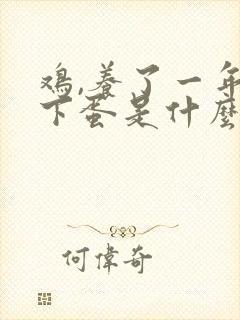 鸡,养了一年
下蛋是什麽
何偉奇